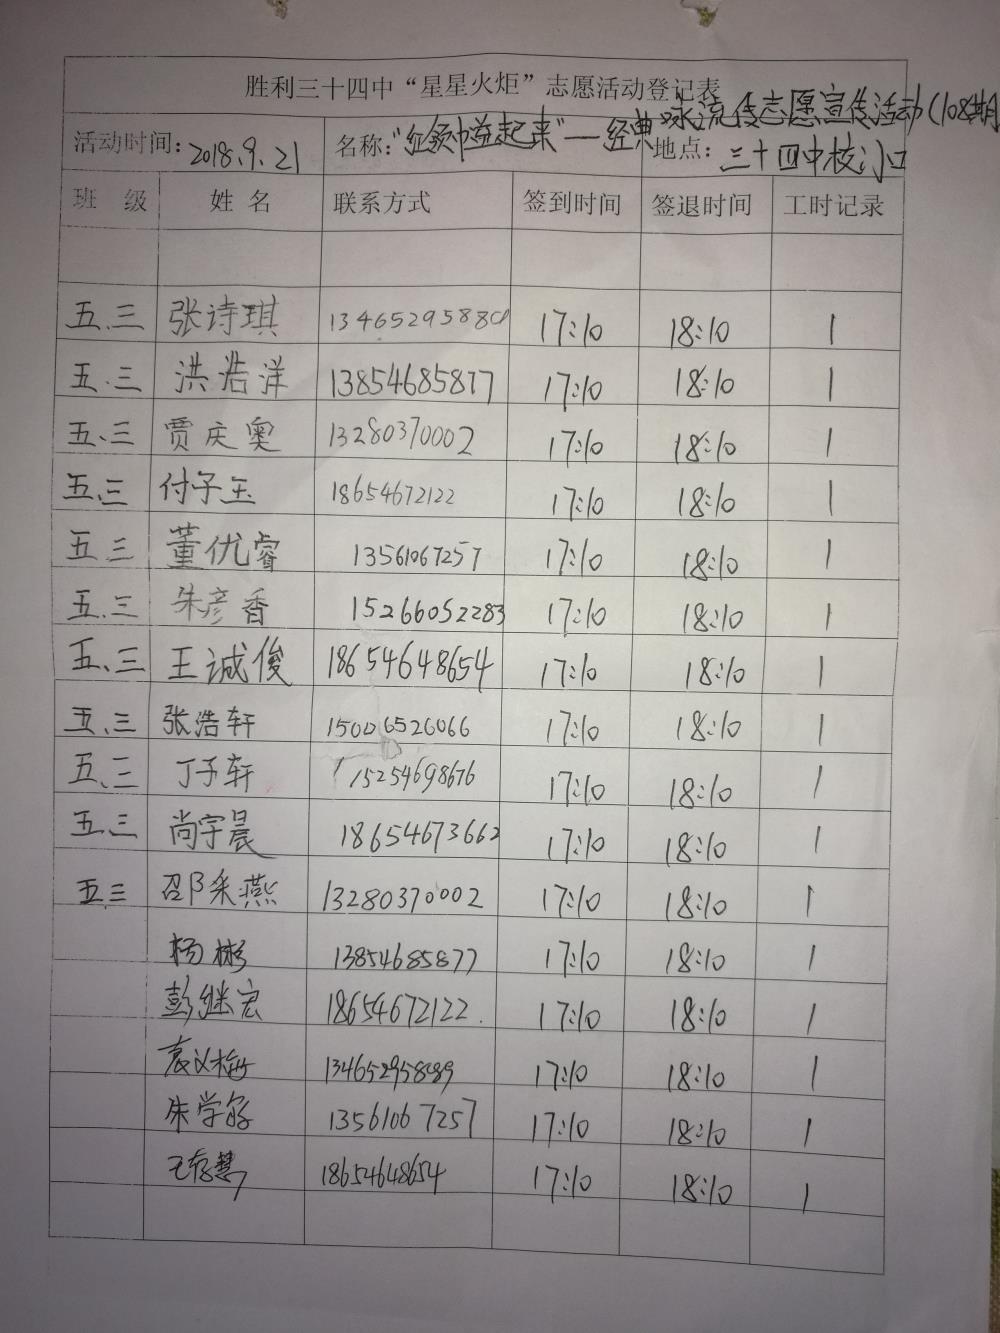 胜利三十四中“星星火炬”志愿活动登记表
活动时间：2018.9.21 名称：“红领巾益起来”—经典咏流传志愿宣传活动(108期) 地点：三十四中校门口
班 级 姓 名 联系方式 签到时间 签退时间 工时记录
五.三 张诗琪 1346529588 17:10 18:10 1
五.三 洪浩洋 13854685877 17:10 18:10 1
五.三 贾庆奥 13280370002 17:10 18:10 1
五.三 付子玉 18654672122 17:10 18:10 1
五.三 董优睿 13561067257 17:10 18:10 1
五.三 朱彦香 15266052283 17:10 18:10 1
五.三 王诚俊 18654648654 17:10 18:10 1
五.三 张浩轩 15006526066 17:10 18:10 1
五.三 丁子轩 15254698676 17:10 18:10 1
五.三 尚宇晨 18654673662 17:10 18:10 1
五三 邵采燕 13280370002 17:10 18:10 1
杨彬 13854685877 17:10 18:10 1
彭继宏 18654672122. 17:10 18:10 1
袁义梅 13465295889 17:10 18:10 1
朱学 13561067257 17:10 18:10 1
王存慧 18654648654 17:10 18:10 1